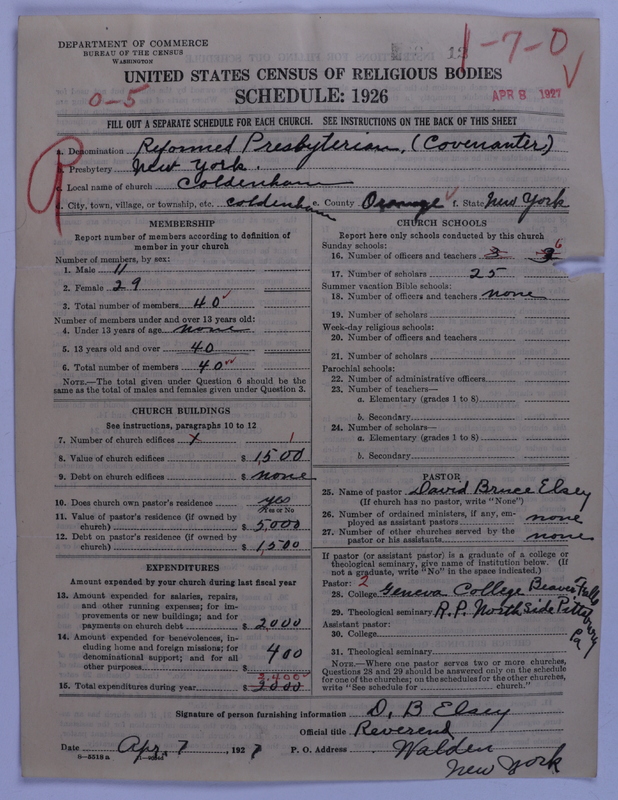 DEPARTMENT OF COMMERCE
BUREAU OF THE CENSUS
WASHINGTON
1-7-0
UNITED STATES CENSUS OF RELIGIOUS BODIES
0-5
SCHEDULE: 1926
APR 8 1927
FILL OUT A SEPARATE SCHEDULE FOR EACH CHURCH. SEE INSTRUCTIONS ON THE BACK OF THIS SHEET
a. Denomination Reformed Presbyterian, (Covenanter)
b. Presbytery New York.
c. Local name of church Coldenham
d. City, town, village, or township, etc. Coldenham e. County Orange f. State New York
MEMBERSHIP
Report number of members according to definition of member in your church
Number of members, by sex:
1. Male 11
2. Female 29
3. Total number of members 40
Number of members under and over 13 years old:
4. Under 13 years of age none
5. 13 years old and over 40
6. Total number of members 40
NOTE.—The total given under Question 6 should be the
same as the total of males and females given under Question 3.
CHURCH BUILDINGS
See instructions, paragraphs 10 to 12
7. Number of church edifices x 1
8. Value of church edifices $ 1500
9. Debt on church edifices $ none
10. Does church own pastor's residence yes
Yes or No
11. Value of pastor's residence (if owned by
church) $ 5000
12. Debt on pastor's residence (if owned by
church) $ 1500
EXPENDITURES
Amount expended by your church during last fiscal year
13. Amount expended for salaries, repairs,
and other running expenses; for im-
provements or new buildings; and for
payments on church debt $ 2000
14. Amount expended for benevolences, in-
cluding home and foreign missions; for
denominational support; and for all
other purposes $ 400
2,400
15. Total expenditures during year $ 2000
CHURCH SCHOOLS
Report here only schools conducted by this church
Sunday schools:
16. Number of officers and teachers 3 6
17. Number of scholars 25
Summer vacation Bible schools:
18. Number of officers and teachers none
19. Number of scholars
Week-day religious schools:
20. Number of officers and teachers
21. Number of scholars
Parochial schools:
22. Number of administrative officers
23. Number of teachers—
a. Elementary (grades 1 to 8)
b. Secondary
24. Number of scholars—
a. Elementary (grades 1 to 8)
b. Secondary $
PASTOR
25. Name of pastor David Bruce Elsey
(If church has no pastor, write "None")
26. Number of ordained ministers, if any, em-
ployed as assistant pastors none
27. Number of other churches served by the
pastor or his assistants none
If pastor (or assistant pastor) is a graduate of a college or
theological seminary, give name of institution below. (If
not a graduate, write "No" in the space indicated.)
Pastor: 2
28. College Geneva College Beaver Falls
29. Theological seminary R.P. North Side Pittsburg Pa
Assistant pastor:
30. College
31. Theological seminary
NOTE.—Where one pastor serves two or more churches,
Questions 28 and 29 should be answered only on the schedule
for one of the churches; on the schedules for the other churches,
write "See schedule for church."
Signature of person furnishing information D. B Elsey
Official title Reverend
Date Apr, 7, 1927 P. O. Address Walden
New York
8-5518 a